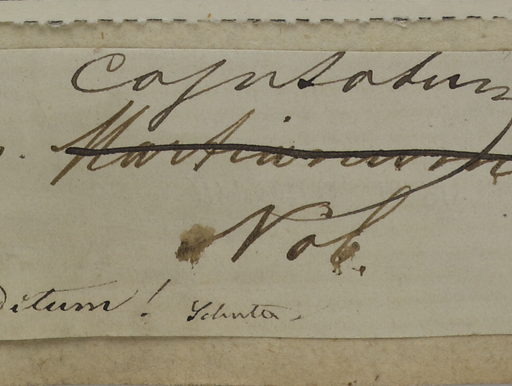 Capitatum
Martianum
Nob.
ditum! Schultes